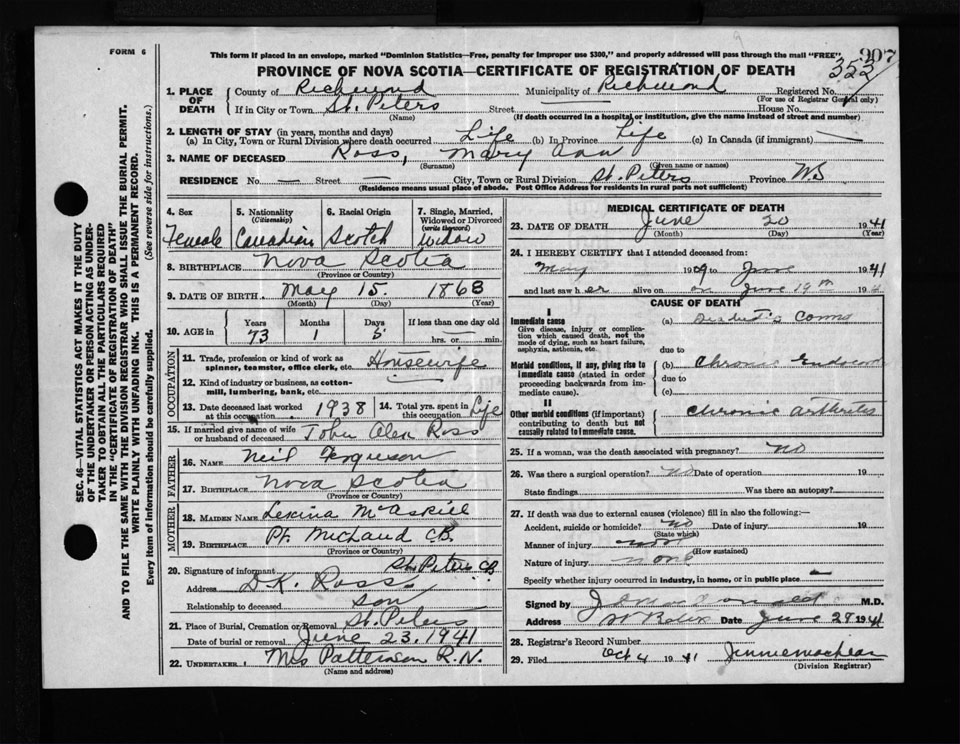 FORM 6
This form if placed in an envelope, marked "Dominion Statistics—Free, penalty for improper use $300," and properly addressed will pass through the mail "FREE".
207
353
PROVINCE OF NOVA SCOTIA—CERTIFICATE OF REGISTRATION OF DEATH
1. PLACE OF DEATH County of Richmond Municipality of Richmond Registered No.
(For use of Registrar General only)
If in City or Town St. Peters Street House No.
(Name) (If death occurred in a hospital or institution, give the name instead of street and number)
2. LENGTH OF STAY (in years, months and days)
(a) In City, Town or Rural Division where death occurred Life (b) In Province Life (c) In Canada (if immigrant) —
3. NAME OF DECEASED Ross, Mary Ann
(Surname) (Given name or names)
RESIDENCE No. — Street — City, Town or Rural Division St. Peters Province NS
(Residence means usual place of abode. Post Office Address for residents in rural parts not sufficient)
4. Sex Female
5. Nationality (Citizenship) Canadian
6. Racial Origin Scotch
7. Single, Married, Widowed or Divorced (write the word) Widow
8. BIRTHPLACE Nova Scotia
(Province or Country)
9. DATE OF BIRTH May 15, 1868
(Month) (Day) (Year)
10. AGE in Years 73 Months 1 Days 5 If less than one day old hrs. or min.
OCCUPATION
11. Trade, profession or kind of work as spinner, teamster, office clerk, etc. Housewife
12. Kind of industry or business, as cotton-mill, lumbering, bank, etc. —
13. Date deceased last worked at this occupation 1938
14. Total yrs. spent in this occupation Life
15. If married give name of wife or husband of deceased John Alex Ross
FATHER
16. NAME Neil Ferguson
17. BIRTHPLACE Nova Scotia
(Province or Country)
MOTHER
18. MAIDEN NAME McAskill
19. BIRTHPLACE Pt. Michaud CB.
(Province or Country)
20. Signature of informant D.K. Ross
Address St. Peters CB
Relationship to deceased son
21. Place of Burial, Cremation or Removal St. Peters
Date of burial or removal June 23, 1941
22. UNDERTAKER Mrs Patterson R.N.
(Name and address)
MEDICAL CERTIFICATE OF DEATH
23. DATE OF DEATH June 20 1941
(Month) (Day) (Year)
24. I HEREBY CERTIFY that I attended deceased from:
May 19 to June 1941
and last saw her alive on June 19th 19
CAUSE OF DEATH
I
Immediate cause (a)
Give disease, injury or complication which caused death, not the mode of dying, such as heart failure, asphyxia, asthenia, etc.
due to
Morbid conditions, if any, giving rise to immediate cause (stated in order proceeding backwards from immediate cause). (b) Chronic
due to
(c)
II
Other morbid conditions (if important) contributing to death but not causally related to immediate cause. Chronic arthritis
25. If a woman, was the death associated with pregnancy? NO
26. Was there a surgical operation? NO Date of operation 19
State findings Was there an autopsy?
27. If death was due to external causes (violence) fill in also the following:—
Accident, suicide or homicide? NO Date of injury 19
(State which)
Manner of injury
(How sustained)
Nature of injury none
Specify whether injury occurred in industry, in home, or in public place —
Signed by M.D.
Address Date June 27 1941
28. Registrar's Record Number
29. Filed Oct 4 1941
(Division Registrar)
SEC. 46—VITAL STATISTICS ACT MAKES IT THE DUTY
OF THE UNDERTAKER OR PERSON ACTING AS UNDER-
TAKER TO OBTAIN ALL THE PARTICULARS REQUIRED
IN THE "CERTIFICATE OF REGISTRATION OF DEATH"
AND TO FILE THE SAME WITH THE DIVISION REGISTRAR WHO SHALL ISSUE THE BURIAL PERMIT.
WRITE PLAINLY WITH UNFADING INK. THIS IS A PERMANENT RECORD.
Every item of information should be carefully supplied. (See reverse side for instructions.)